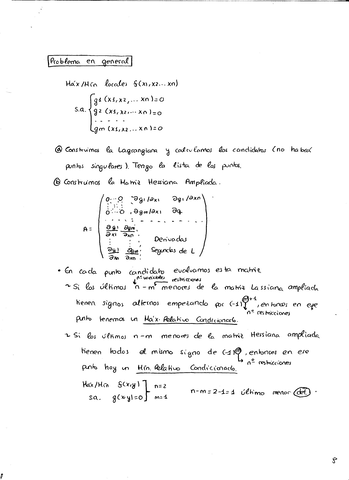 Problema en general
Máx/Mín locales f(x1, x2... xn)
s.a. { g1 (x1, x2, ... xn)=0
g2 (x1, x2, ... xn)=0
- - - - -
gm (x1, x2, ... xn)=0
ⓐ Construimos la Lagrangiana y calculamos los candidatos (no habrá
puntos singulares). Tengo la lista de los puntos.
ⓑ Construimos la Matriz Hessiana Ampliada.
A =
0...0 ∂g1/∂x1 ∂g1/∂xn
0...0 ∂gm/∂x1
∂g1/∂x1 ∂gm/∂x1
Derivadas
∂g1/∂xn ∂gm/∂xn Segundas de L
• En cada punto candidato evaluamos esta matriz
nº variables restricciones
~ Si los últimos n-m menores de la matriz Lassiana ampliada
tienen signos alternos empezando por (-1)^m+1, entonces en ese
nº restricciones
punto tenemos un Máx. Relativo Condicionado.
~ Si los últimos n-m menores de la matriz Hessiana ampliada
tienen todos el mismo signo de (-1)^m, entonces en ese
nº restricciones
punto hay un Mín. Relativo Condicionado.
Máx/Mín f(x,y) n=2
s.a. g(x,y)=0 m=1 n-m=2-1=1 último menor (det)